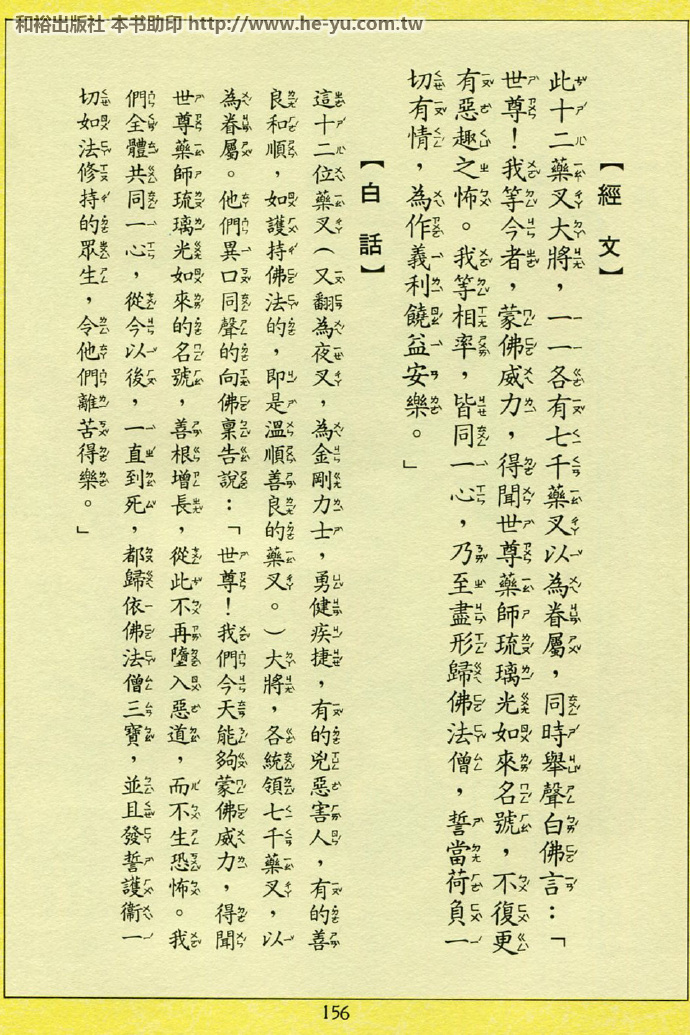 和裕出版社 本书助印 http://www.he-yu.com.tw
【經文】
此十二藥叉大將，一一各有七千藥叉以為眷屬，同時舉聲白佛言：「
世尊！我等今者，蒙佛威力，得聞世尊藥師琉璃光如來名號，不復更
有惡趣之怖。我等相率，皆同一心，乃至盡形歸佛法僧，誓當荷負一
切有情，為作義利饒益安樂。」
【白話】
這十二位藥叉（又翻為夜叉，為金剛力士，勇健疾捷，有的兇惡害人，有的善
良和順，如護持佛法的，即是溫順善良的藥叉。）大將，各統領七千藥叉，以
為眷屬。他們異口同聲的向佛稟告說：「世尊！我們今天能夠蒙佛威力，得聞
世尊藥師琉璃光如來的名號，善根增長，從此不再墮入惡道，而不生恐怖。我
們全體共同一心，從今以後，一直到死，都歸依佛法僧三寶，並且發誓護衛一
切如法修持的眾生，令他們離苦得樂。」
156